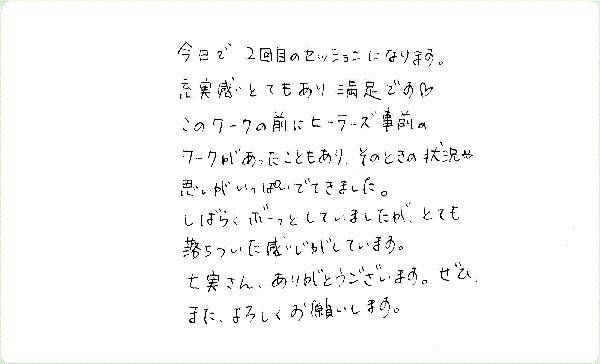 今日で 2回目のセッションになります。
充実感 とてもあり 満足です♡
このワークの前に ヒーラーズ 事前の
ワークがあったこともあり、そのときの 状況や
思いがいっぱいでてきました。
しばらくボーっとしていましたが、とても
落ちついた感じがしています。
七実さん、ありがとうございます。ぜひ、
また、よろしくお願いします。